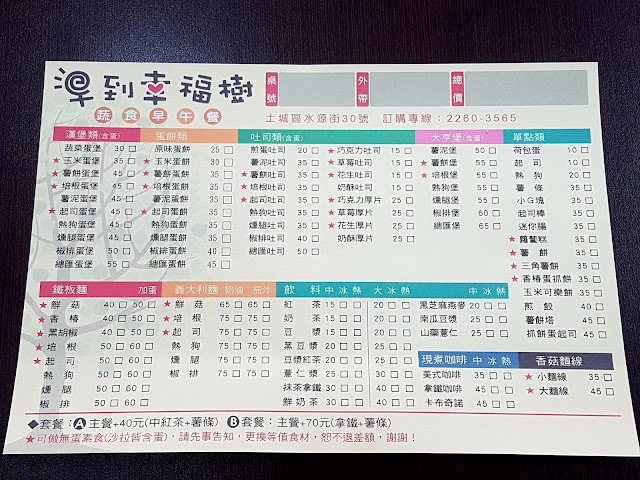 得到幸福樹
蔬食早午餐
桌號 外帶 總價
土城區水源街30號 訂購專線：2260-3565
漢堡類(含蛋)
蔬菜蛋堡 30 □
★玉米蛋堡 35 □
★薯餅蛋堡 35 □
★培根蛋堡 35 □
薯泥蛋堡 35 □
★起司蛋堡 35 □
熱狗蛋堡 35 □
燻腿蛋堡 35 □
椒排蛋堡 50 □
總匯蛋堡 55 □
蛋餅類
原味蛋餅 25 □
★玉米蛋餅 30 □
★薯餅蛋餅 35 □
★培根蛋餅 35 □
薯泥蛋餅 35 □
★起司蛋餅 35 □
熱狗蛋餅 35 □
燻腿蛋餅 35 □
椒排蛋餅 45 □
總匯蛋餅 45 □
吐司類(含蛋)
煎蛋吐司 20 □
★薯泥吐司 35 □
★薯餅吐司 35 □
★培根吐司 35 □
★起司吐司 35 □
熱狗吐司 35 □
燻腿吐司 35 □
椒排吐司 40 □
總匯吐司 50 □
★巧克力吐司 15 □
★草莓吐司 15 □
★花生吐司 15 □
奶酥吐司 15 □
★巧克力厚片 25 □
★草莓厚片 25 □
★花生厚片 25 □
奶酥厚片 25 □
大亨堡(含蛋)
薯泥堡 50 □
★薯餅堡 50 □
★培根堡 50 □
熱狗堡 50 □
燻腿堡 55 □
椒排堡 60 □
總匯堡 65 □
單點類
荷包蛋 10 □
起司 10 □
熱狗 20 □
薯條 35 □
小G塊 35 □
起司棒 35 □
迷你腸 35 □
★蘿蔔糕 35 □
★薯餅 35 □
★三角薯餅 35 □
★香椿蛋抓餅 35 □
玉米可樂餅 35 □
煎餃 40 □
薯餅塔 45 □
抓餅蛋起司 45 □
鐵板麵 加蛋
★鮮菇 40 □ 50 □
★香椿 40 □ 50 □
★黑胡椒 40 □ 50 □
★培根 50 □ 60 □
★起司 50 □ 60 □
熱狗 50 □ 60 □
燻腿 50 □ 60 □
椒排 50 □ 60 □
義大利麵 奶油 茄汁
★鮮菇 65 □ 65 □
★培根 75 □ 75 □
★起司 75 □ 75 □
熱狗 75 □ 75 □
燻腿 75 □ 75 □
椒排 75 □ 75 □
飲料 中 冰 熱 大 冰 熱
紅茶 15 □ □ 20 □ □
奶茶 15 □ □ 20 □ □
豆漿 15 □ □ 20 □ □
黑豆漿 20 □ □ 25 □ □
豆漿紅茶 20 □ □ 25 □ □
薏仁漿 25 □ □ 30 □ □
抹茶拿鐵 30 □ □ 40 □ □
鮮奶茶 30 □ □ 40 □ □
黑芝麻燕麥 20 □ □
南瓜豆漿 25 □ □
山藥薏仁 25 □ □
現煮咖啡 中 冰 熱
美式咖啡 35 □ □
拿鐵咖啡 45 □ □
卡布奇諾 45 □
香菇麵線
★小麵線 35 □
★大麵線 45 □
◆套餐：A 主餐+40元(中紅茶+薯條) B 套餐：主餐+70元(拿鐵+薯條)
★可做無蛋素食(沙拉皆含蛋)，請先事告知，更換等值食材，恕不退差額，謝謝！